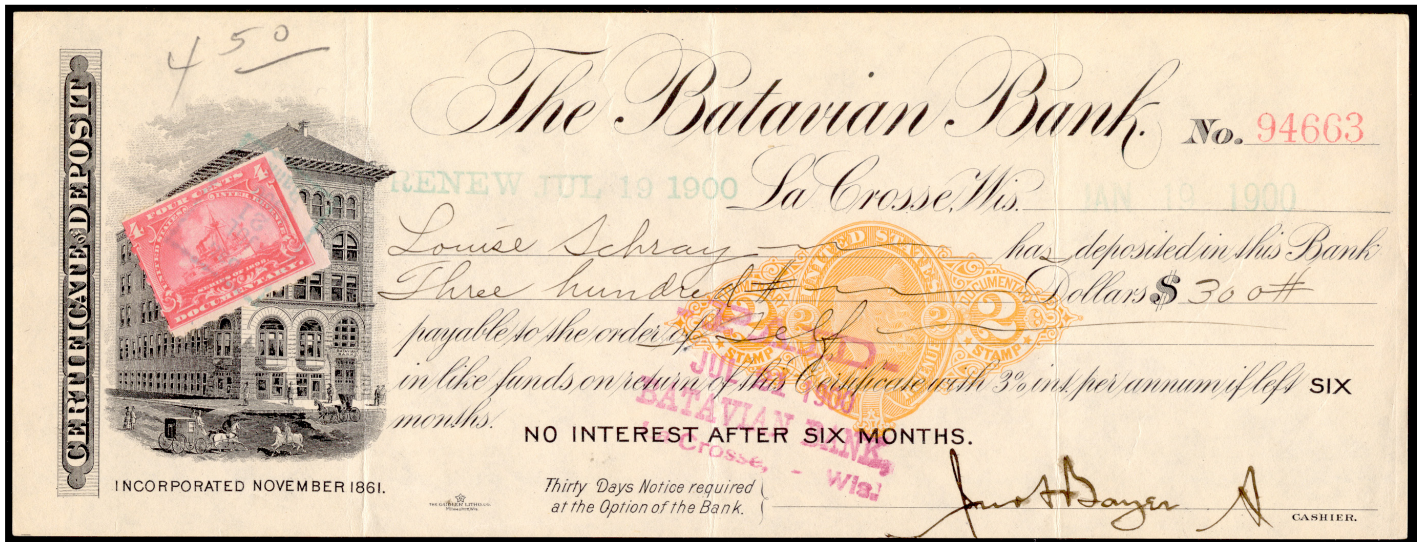 4 50
CERTIFICATE OF DEPOSIT
The Batavian Bank.
No. 94663
RENEW JUL 19 1900
La Crosse, Wis. JAN 19 1900
Louise Schray has deposited in this Bank
Three hundred Dollars $ 300
payable to the order of Self
in like funds, on return of this Certificate with 3% int. per annum if left SIX
months.
NO INTEREST AFTER SIX MONTHS.
INCORPORATED NOVEMBER 1861.
Thirty Days Notice required
at the Option of the Bank.
CASHIER.
4 FOUR CENTS 4
UNITED STATES INTER. REVENUE
SERIES OF 1898
DOCUMENTARY.
UNITED STATES
DOCUMENTARY
2 2 2 2
STAMP STAMP
PAID
JUL 1900
BATAVIAN BANK,
La Crosse, - Wis.